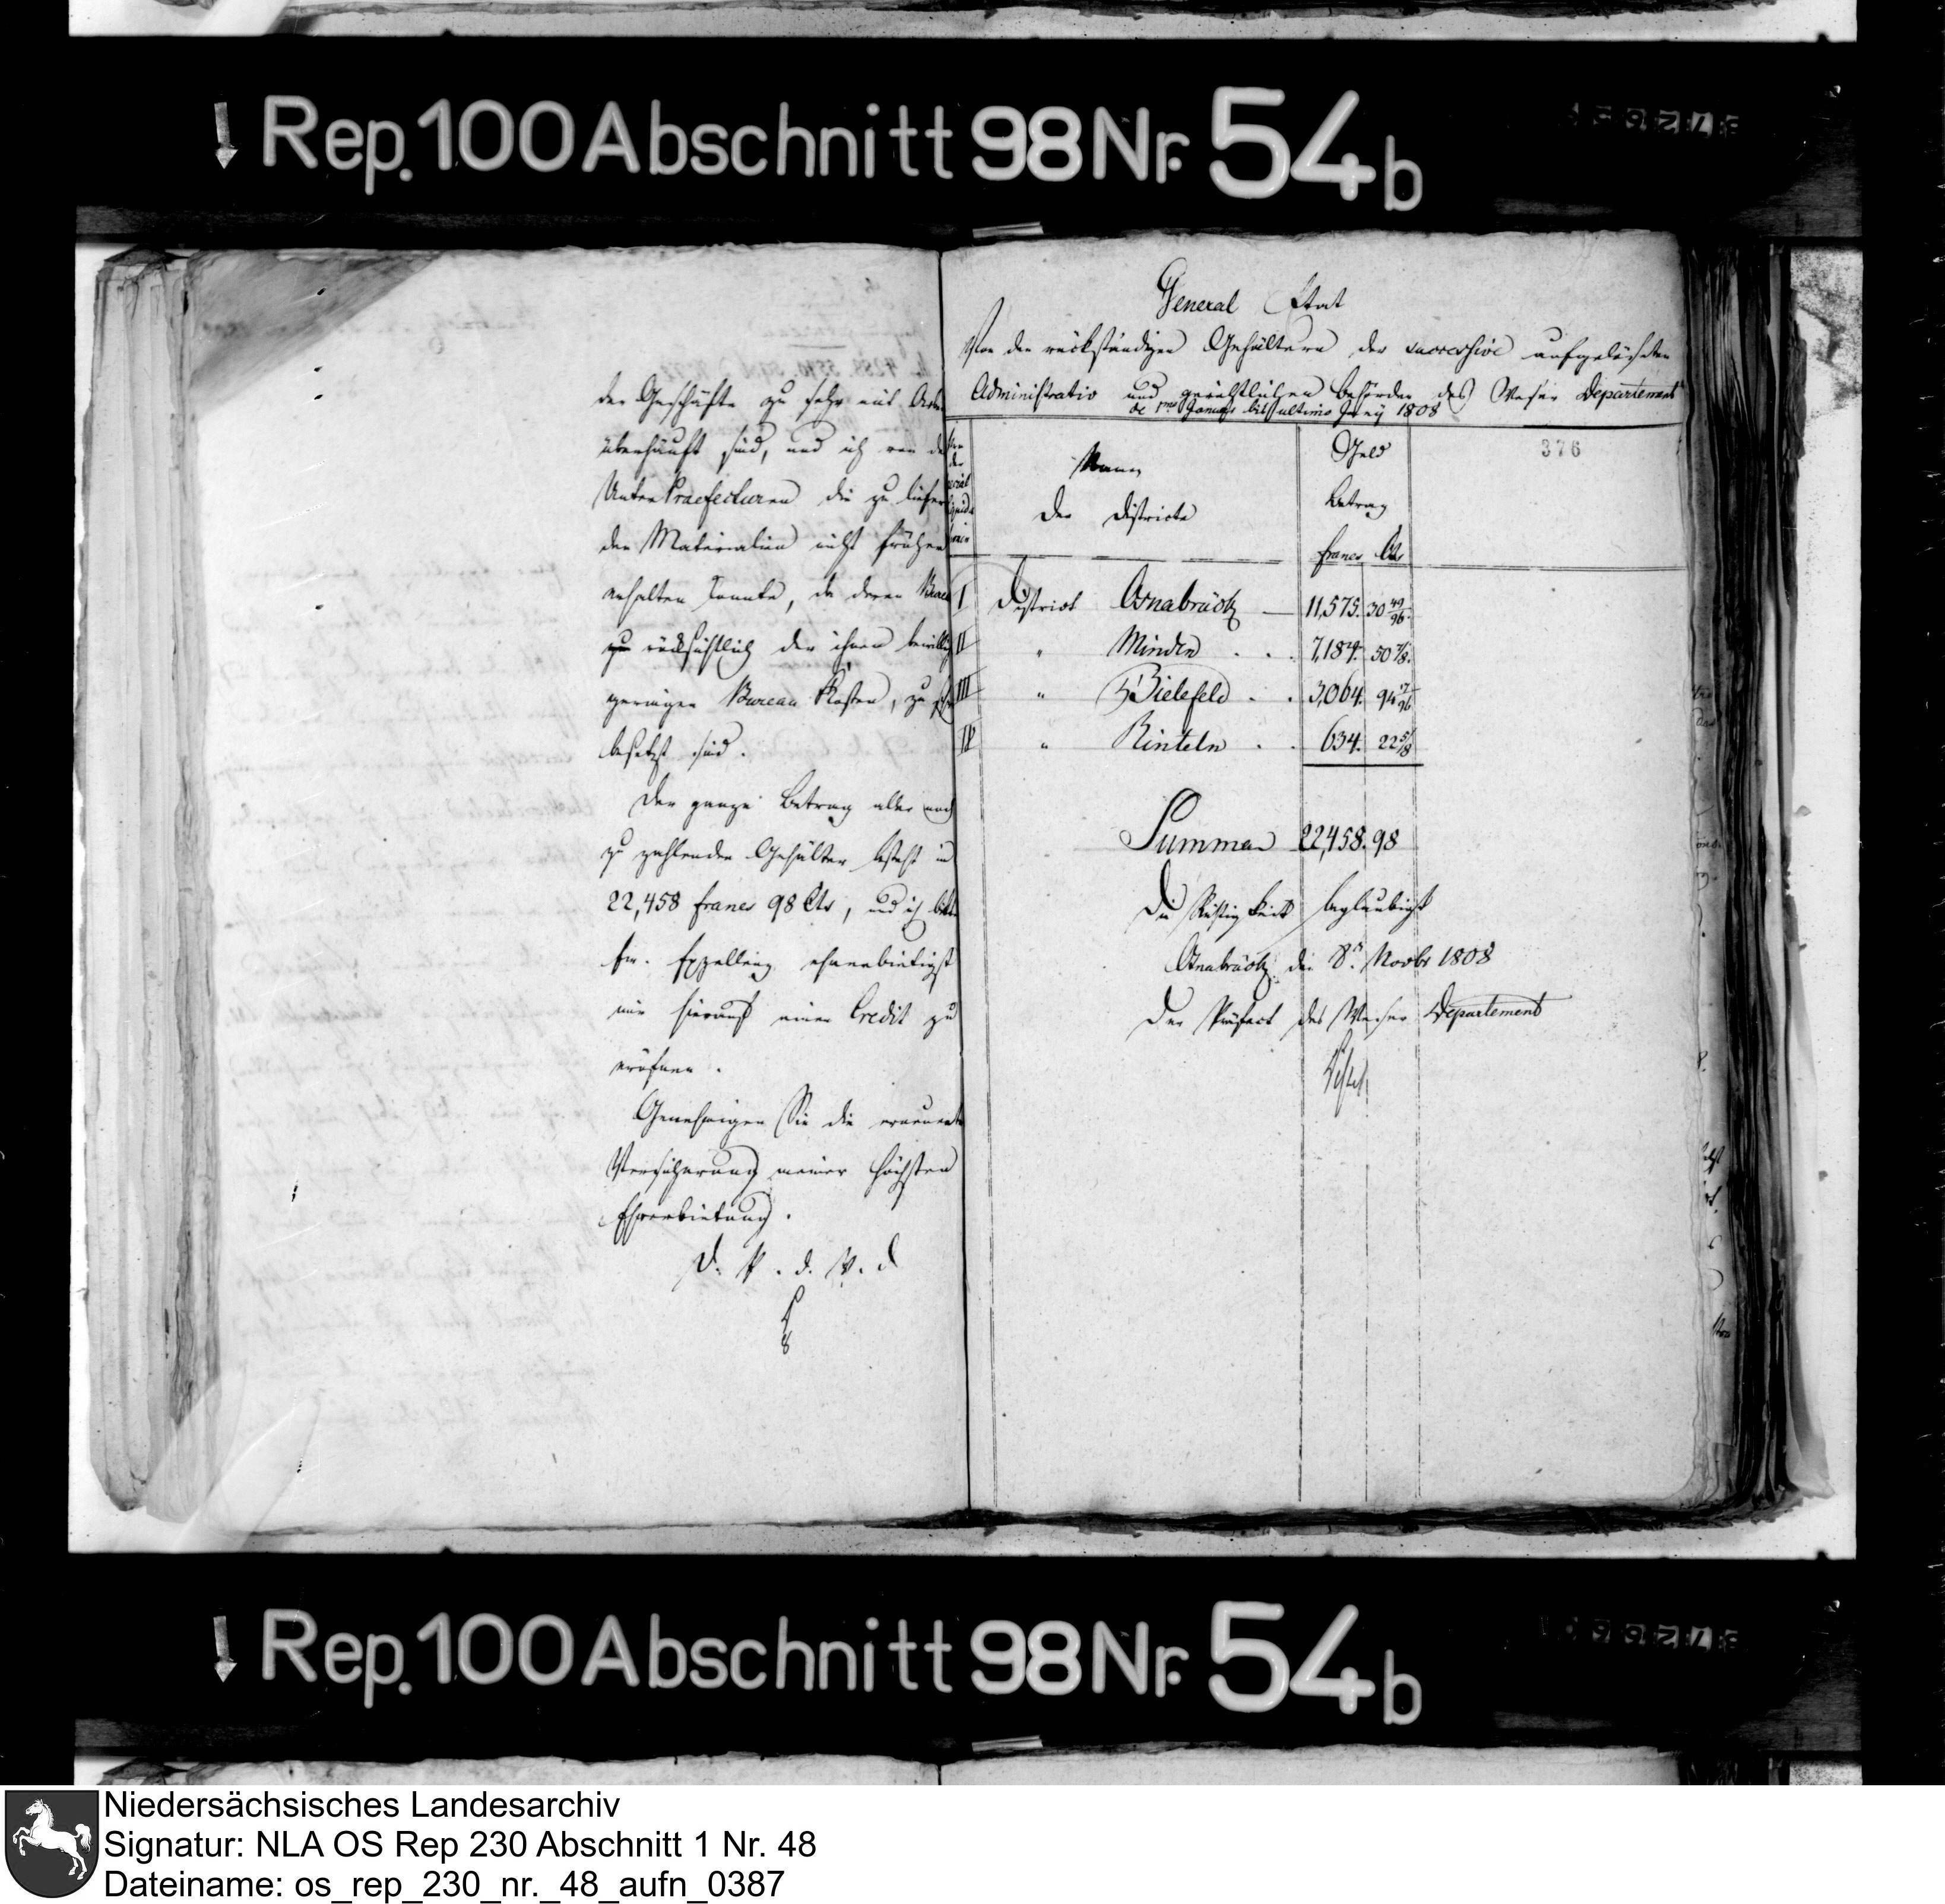 Rep. 100 Abschnitt 98 Nr. 54b
der Geschäfte zu sehr mit Arbe
überhäuft sind, und ich von de
UnterPraefecturen die zu liefern
den Materialien nicht früher
erhalten konnte, da deren Burea
rücksichtlich der ihnen bewillig
geringen Bureau Kosten, zu
besetzt sind.
Der ganze Betrag aller noch
zu zahlenden Gehälter besteht in
22,458 francs 98 Cts, und ich bitte
Ew. Exzellenz ehrerbietigst
mir hierauf einen Credit zu
eröfnen.
Genehmigen Sie die erneuerte
Versicherung meiner höchsten
Ehrerbietung.
D. P. d. W. D
General Etat
Von den rückständigen Gehältern der successive aufgelöseten
Administrativ und gerichtlichen Behörden des Weser Departements
de 1mo Januar bis ultimo Juny 1808
376
Namen
der Districte
Geld
Betrag
francs Cts
I District Osnabrück — 11,575. 30 49/96.
II " Minden . . . 7,184. 50 7/8.
III " Bielefeld . . 3,064. 94 7/96
IV " Rinteln . . 634. 22 5/8
Summa 22,458. 98
Die Richtigkeit beglaubigt
Osnabrück den 8n Novbr 1808
Der Präfect des Weser Departements
Rep. 100 Abschnitt 98 Nr. 54b
Niedersächsisches Landesarchiv
Signatur: NLA OS Rep 230 Abschnitt 1 Nr. 48
Dateiname: os_rep_230_nr._48_aufn_0387